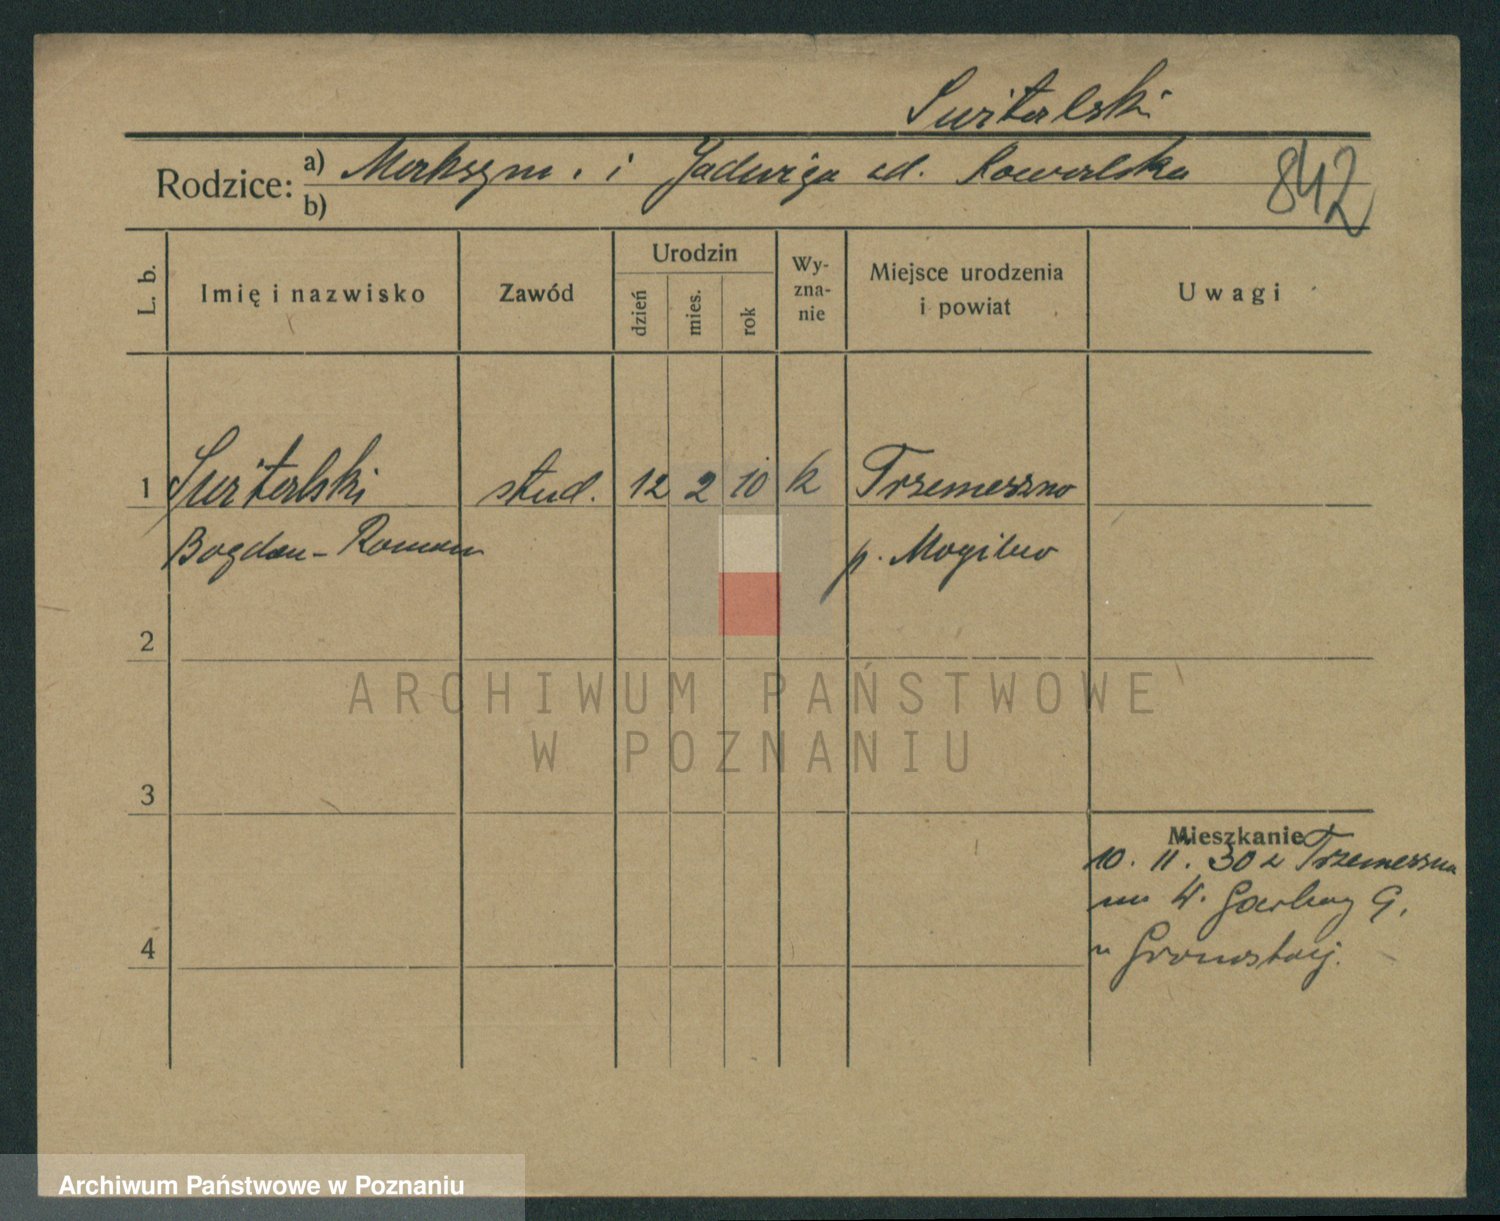 Switalski
Rodzice: a) Maksym. i Jadwiga zd. Kowalska
b)
842
L. b.
Imię i nazwisko
Zawód
Urodzin
dzień
mies.
rok
Wy-
zna-
nie
Miejsce urodzenia
i powiat
Uwagi
1 Switalski stud. 12 2 10 k Trzemeszno
Bogdan-Roman p. Mogilno
2
ARCHIWUM PAŃSTWOWE
W POZNANIU
3
Mieszkanie
10. 11. 30 z Trzemeszna
na W. Garbary 9.
u Gronostaj.
4
Archiwum Państwowe w Poznaniu